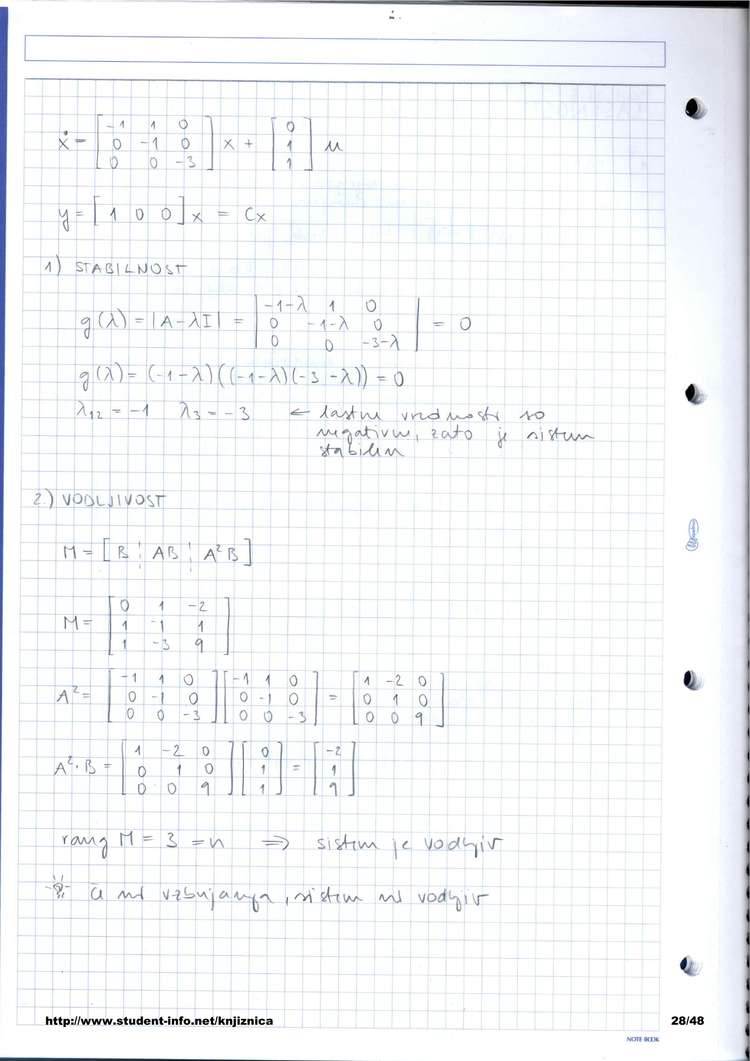 ẋ = [-1 1 0; 0 -1 0; 0 0 -3] x + [0; 1; 1] u
y = [1 0 0] x = Cx
1) STABILNOST
g(λ) = |A-λI| = |-1-λ 1 0; 0 -1-λ 0; 0 0 -3-λ| = 0
g(λ) = (-1-λ)((-1-λ)(-3-λ)) = 0
λ12 = -1 λ3 = -3 ← lastne vrednosti so
negativne, zato je sistem
stabilen
2.) VODLJIVOST
M = [B ¦ AB ¦ A²B]
M = [0 1 -2; 1 -1 1; 1 -3 9]
A² = [-1 1 0; 0 -1 0; 0 0 -3] [-1 1 0; 0 -1 0; 0 0 -3] = [1 -2 0; 0 1 0; 0 0 9]
A²·B = [1 -2 0; 0 1 0; 0 0 9] [0; 1; 1] = [-2; 1; 9]
rang M = 3 = n ⇒ sistem je vodljiv
če ni vzbujanja, sistem ni vodljiv
http://www.student-info.net/knjiznica
28/48
NOTE BOOK